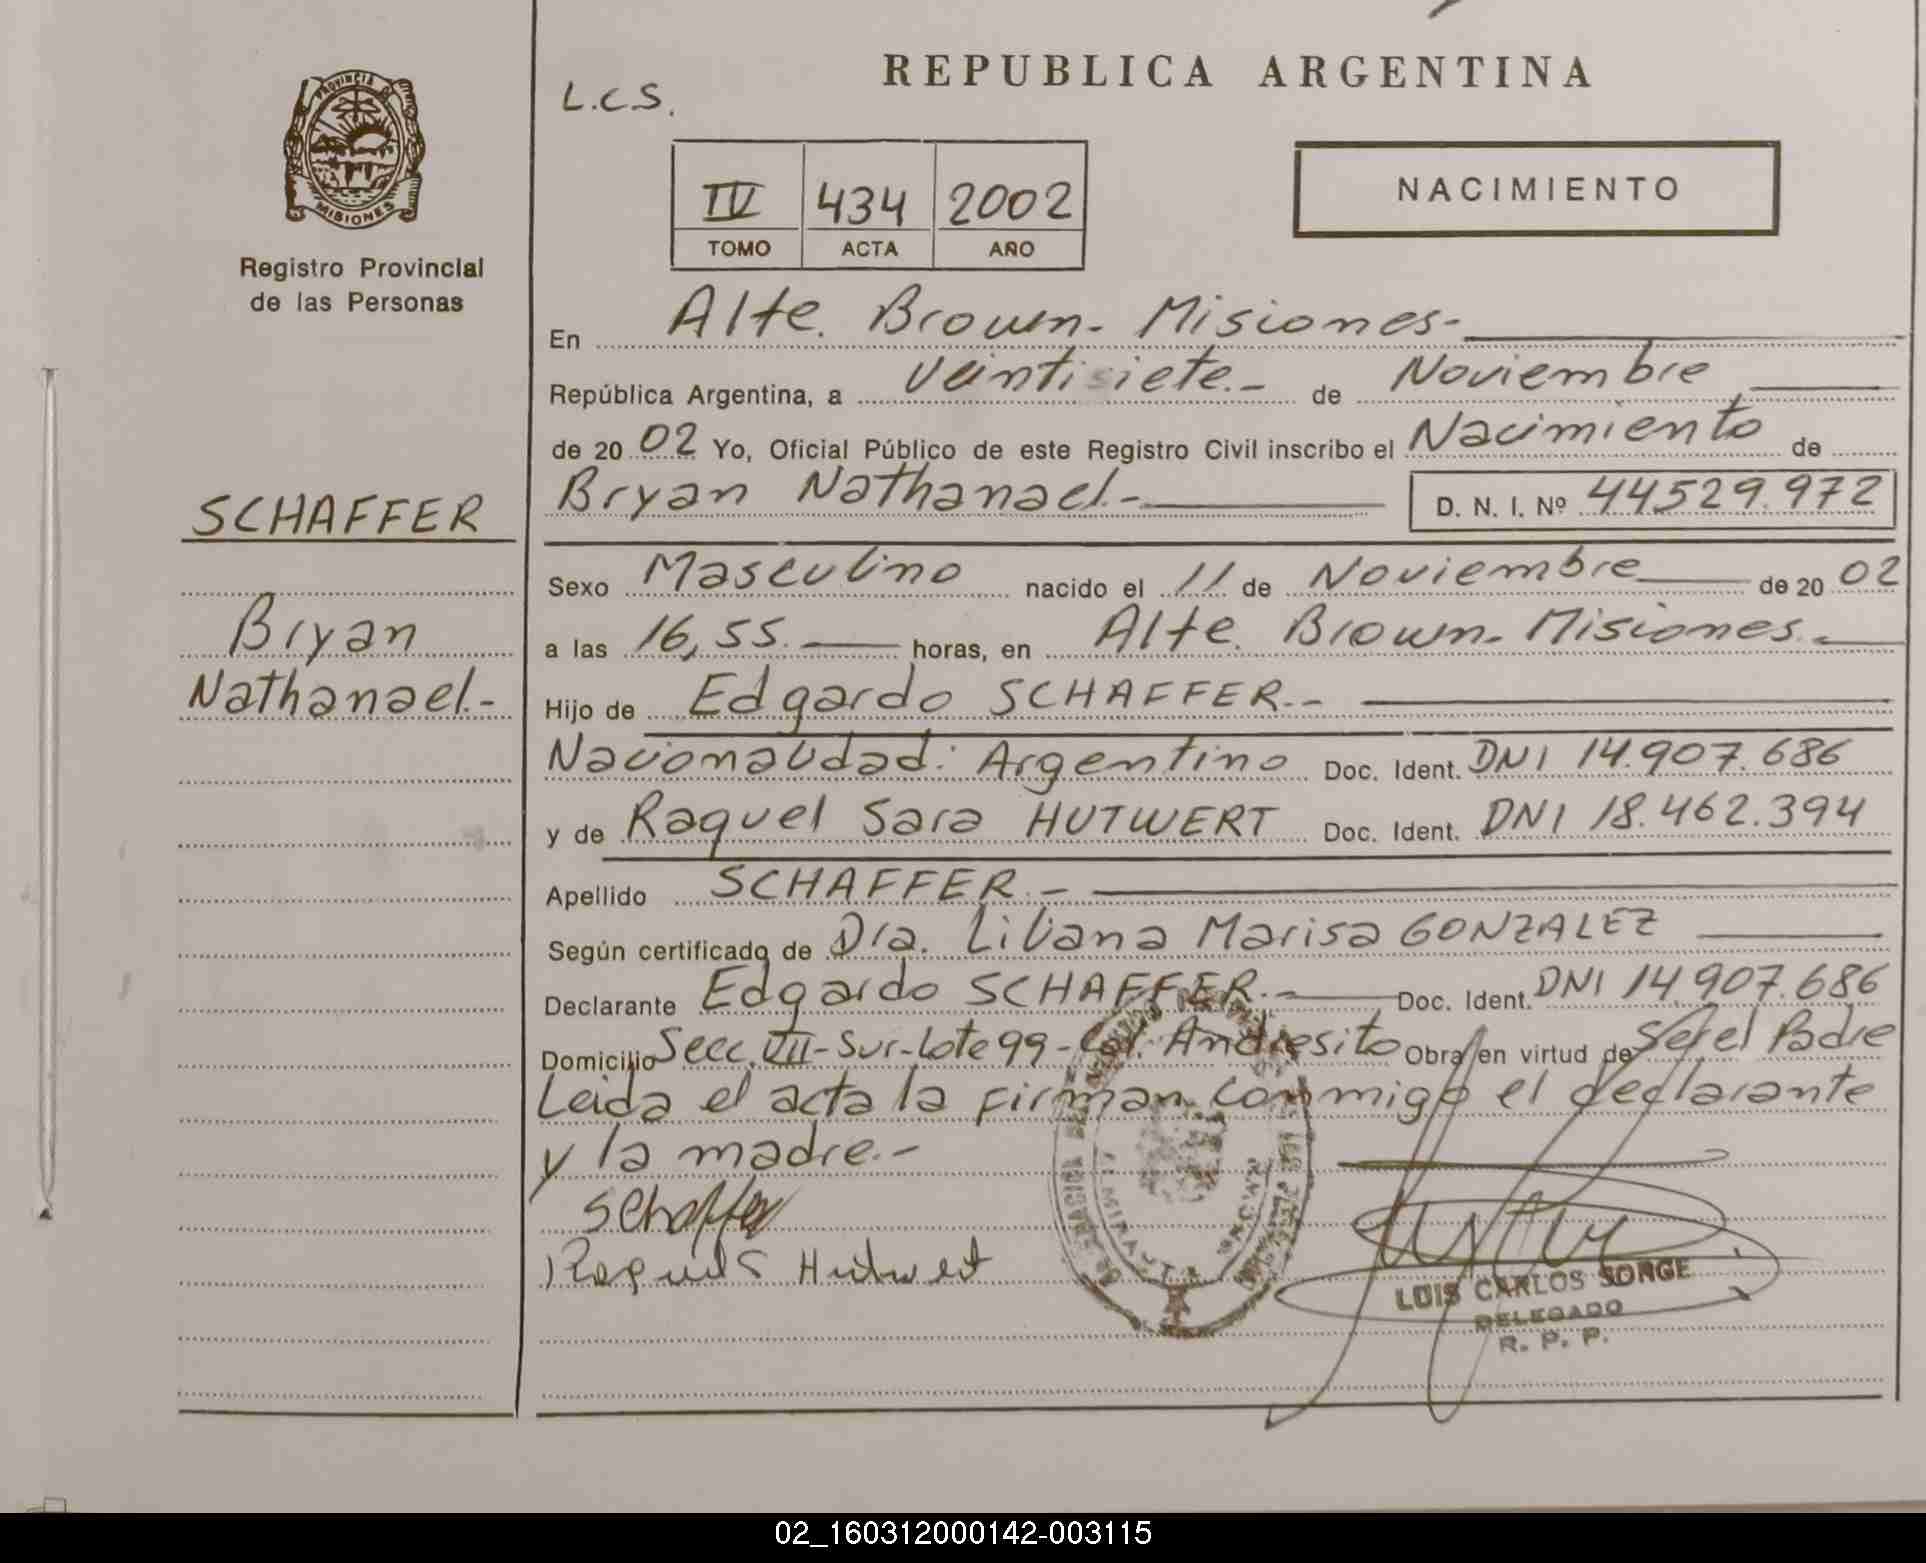 PROVINCIA DE
MISIONES
Registro Provincial
de las Personas
SCHAFFER
Bryan
Nathanael.-
L.C.S.
REPUBLICA ARGENTINA
IV 434 2002
TOMO ACTA AÑO
NACIMIENTO
En Alte. Brown - Misiones -
República Argentina, a veintisiete.- de Noviembre
de 20 02 Yo, Oficial Público de este Registro Civil inscribo el Nacimiento de
Bryan Nathanael.- D. N. I. Nº 44529.972
Sexo Masculino nacido el 11 de Noviembre de 20 02
a las 16,55. horas, en Alte. Brown - Misiones.-
Hijo de Edgardo SCHAFFER.-
Nacionalidad: Argentino Doc. Ident. DNI 14.907.686
y de Raquel Sara HUTWERT Doc. Ident. DNI 18.462.394
Apellido SCHAFFER.-
Según certificado de Dra. Liliana Marisa GONZALEZ
Declarante Edgardo SCHAFFER.- Doc. Ident. DNI 14.907.686
Domicilio Secc. VII - Sur - Lote 99 - Col. Andresito Obra en virtud de Ser el Padre
Leida el acta la firman conmigo el declarante
y la madre.-
Schaffer
Hutwert
LUIS CARLOS SORGE
DELEGADO
R. P. P.
02_160312000142-003115